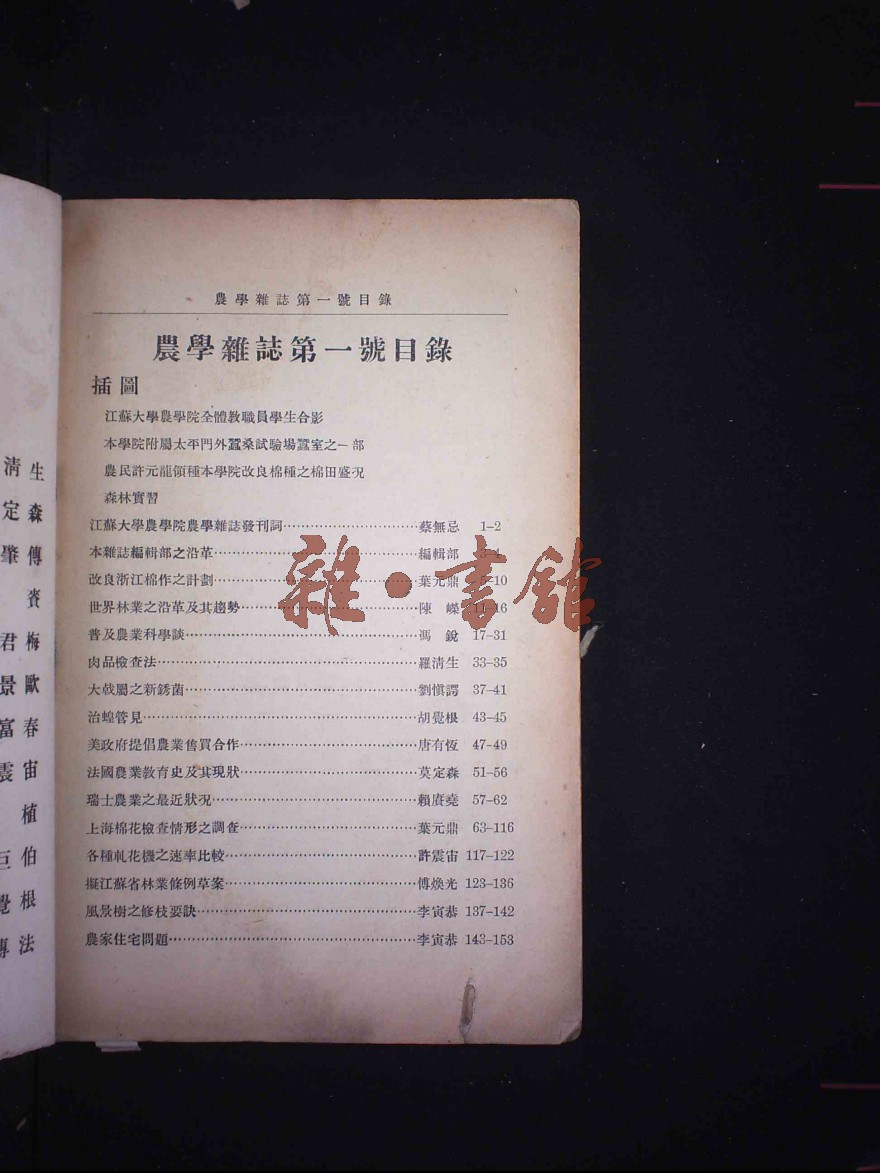 農學雜誌第一號目錄
農學雜誌第一號目錄
插圖
江蘇大學農學院全體教職員學生合影
本學院附屬太平門外蠶桑試驗場蠶室之一部
農民許元龍領種本學院改良棉種之棉田盛况
森林實習
江蘇大學農學院農學雜誌發刊詞……蔡無忌 1-2
本雜誌編輯部之沿革……編輯部 3-4
改良浙江棉作之計劃……葉元鼎 5-10
世界林業之沿革及其趨勢……陳嶸 11-16
普及農業科學談……馮銳 17-31
肉品檢查法……羅清生 33-35
大戟屬之新銹菌……劉愼諤 37-41
治蝗管見……胡覺根 43-45
美政府提倡農業售買合作……唐有恆 47-49
法國農業教育史及其現狀……莫定森 51-56
瑞士農業之最近狀况……賴賡堯 57-62
上海棉花檢查情形之調查……葉元鼎 63-116
各種軋花機之速率比較……許震宙 117-122
擬江蘇省林業條例草案……傅煥光 123-136
風景樹之修枝要訣……李寅恭 137-142
農家住宅問題……李寅恭 143-153
雜·書館
生森傳賚梅歐春宙植伯根法
清定肇君景富震巨覺專